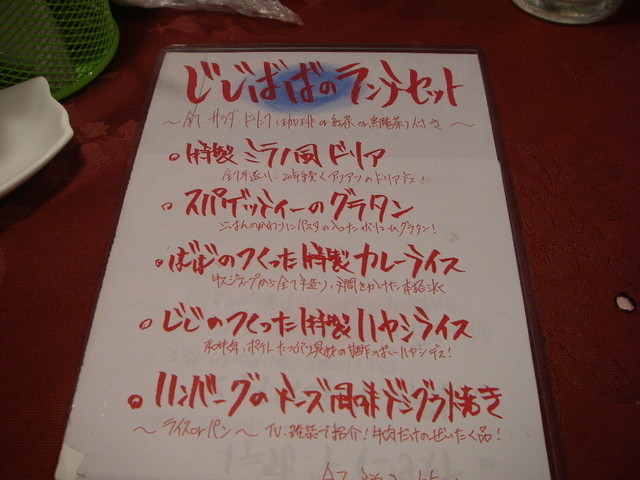 じじばばのランチセット
〜全て サラダ ドリンク(珈琲 or 紅茶 or 烏龍茶)付き〜
特製 ミラノ風ドリア
全て手造り、20年続くアツアツのドリアデス!
スパゲッティーのグラタン
ごはんのかわりにパスタの入ったボリュームグラタン!
ばばのつくった特製カレーライス
牛スジスープから全て手造り、手間をかけた本格派
じじのつくった特製ハヤシライス
ポテト たっぷり具材の ハヤシデス!
ハンバーグのチーズ風味デミグラ焼き
〜ライス or パン〜 TV、雑誌で紹介!牛肉だけのぜいたく品!